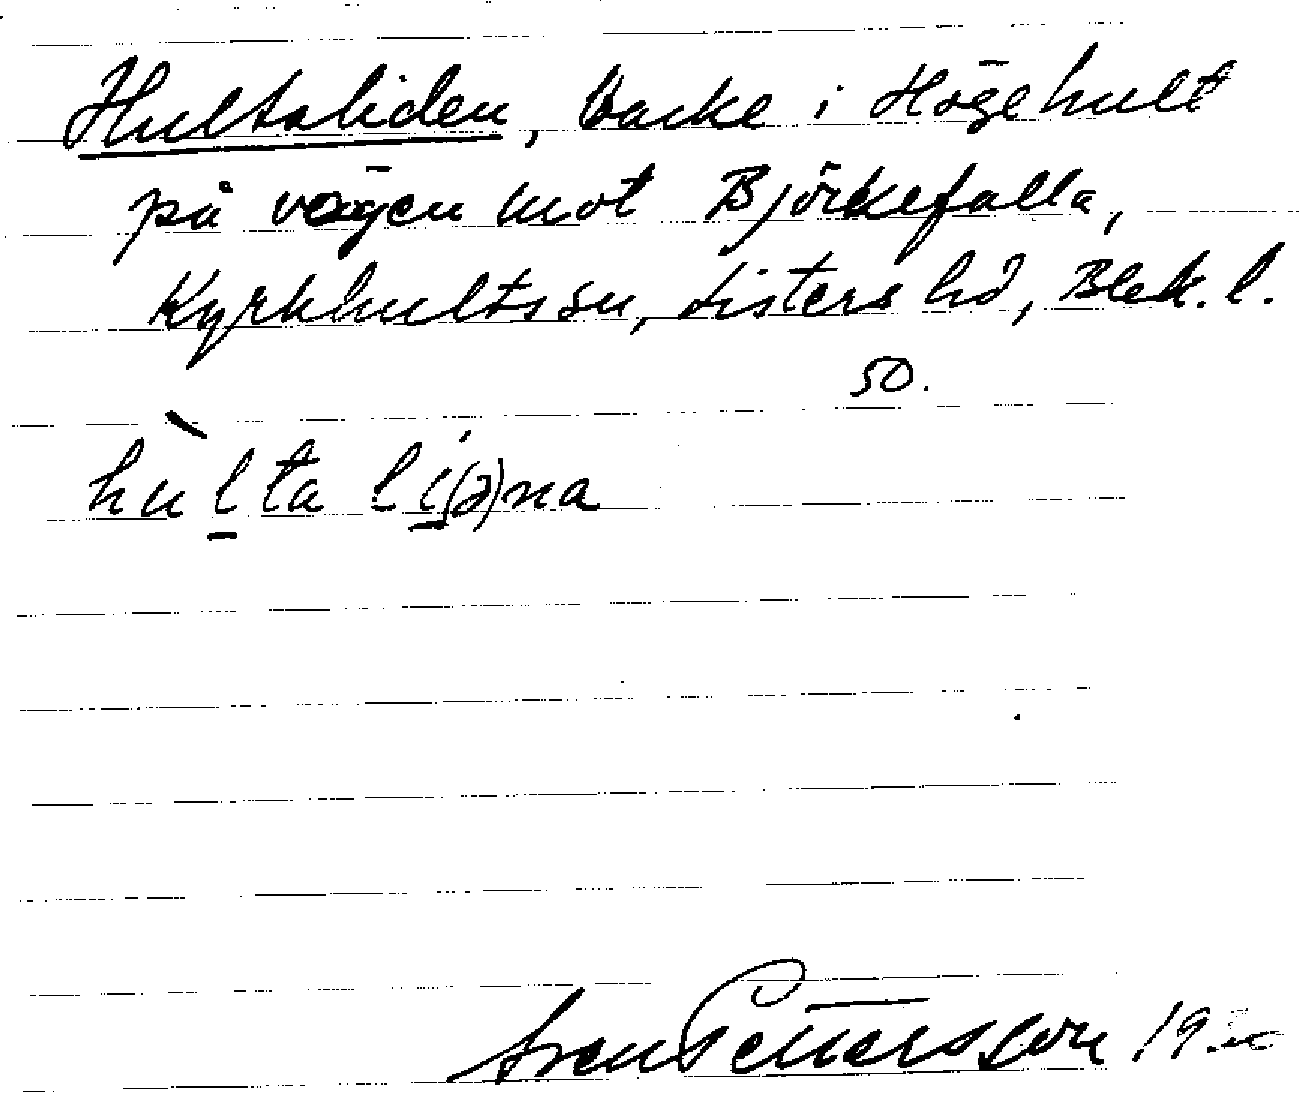 Hultaliden, backe i Högehult
på vägen mot Björkefalla,
Kyrkhults sn, Listers hd, Blek. l.
50.
hùlta lí(ə)na
Sven Pettersson 19